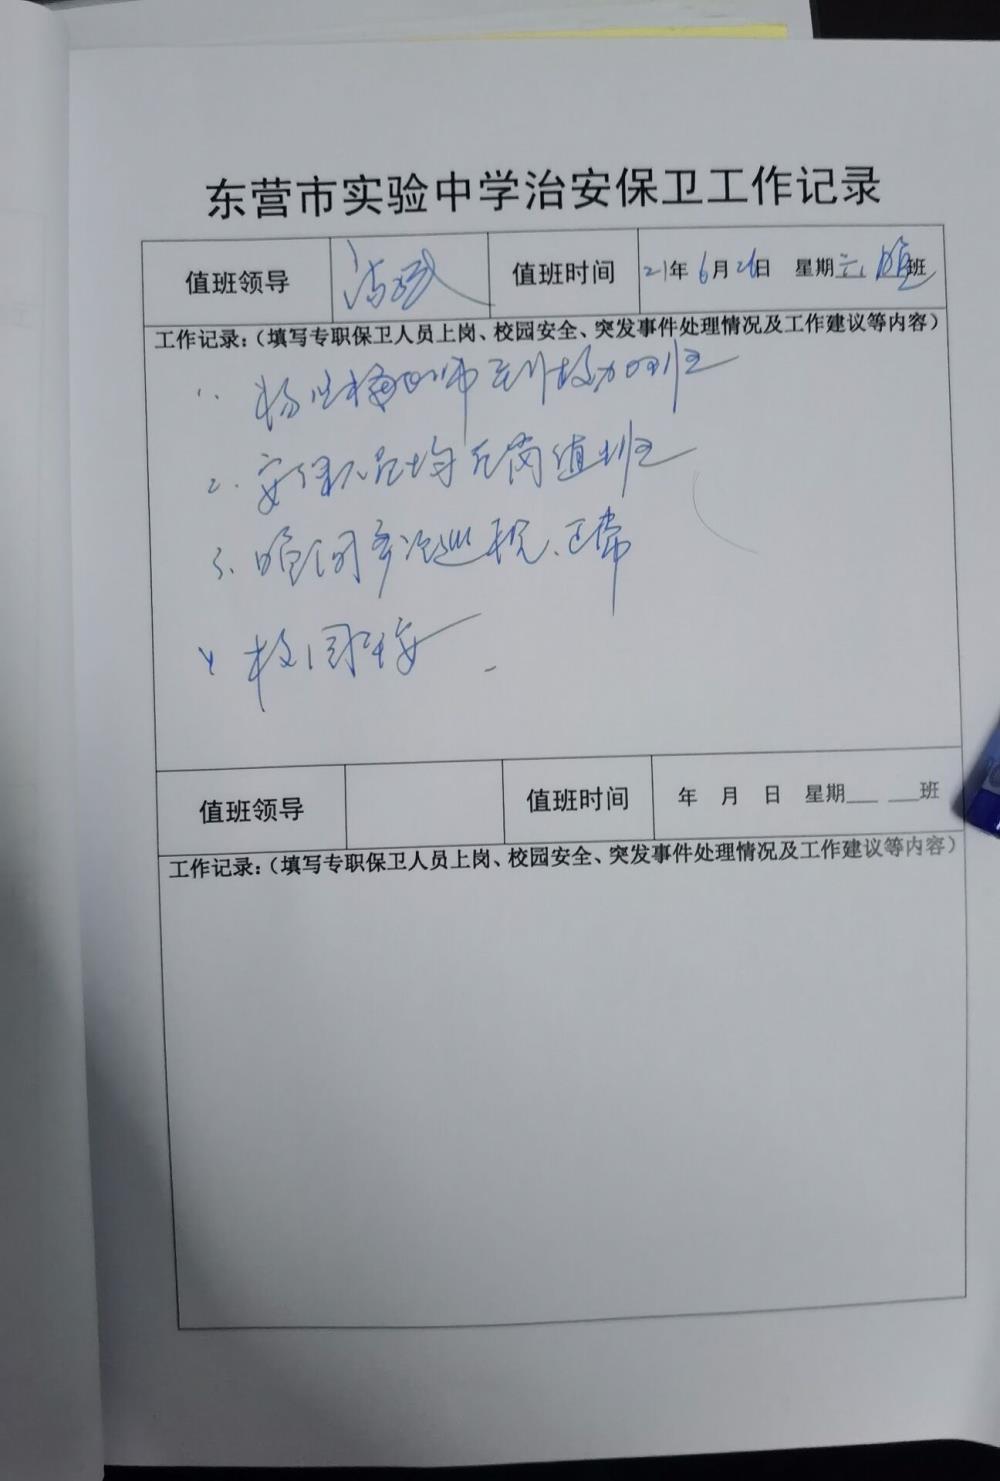 东营市实验中学治安保卫工作记录
值班领导 值班时间 21年6月26日 星期六 晚班
工作记录:(填写专职保卫人员上岗、校园安全、突发事件处理情况及工作建议等内容)
1. 杨 梅老师到校加班
2. 安保人员均在岗值班
3. 晚间多次巡视、正常
4 校园平安
值班领导 值班时间 年 月 日 星期___ ___班
工作记录:(填写专职保卫人员上岗、校园安全、突发事件处理情况及工作建议等内容)